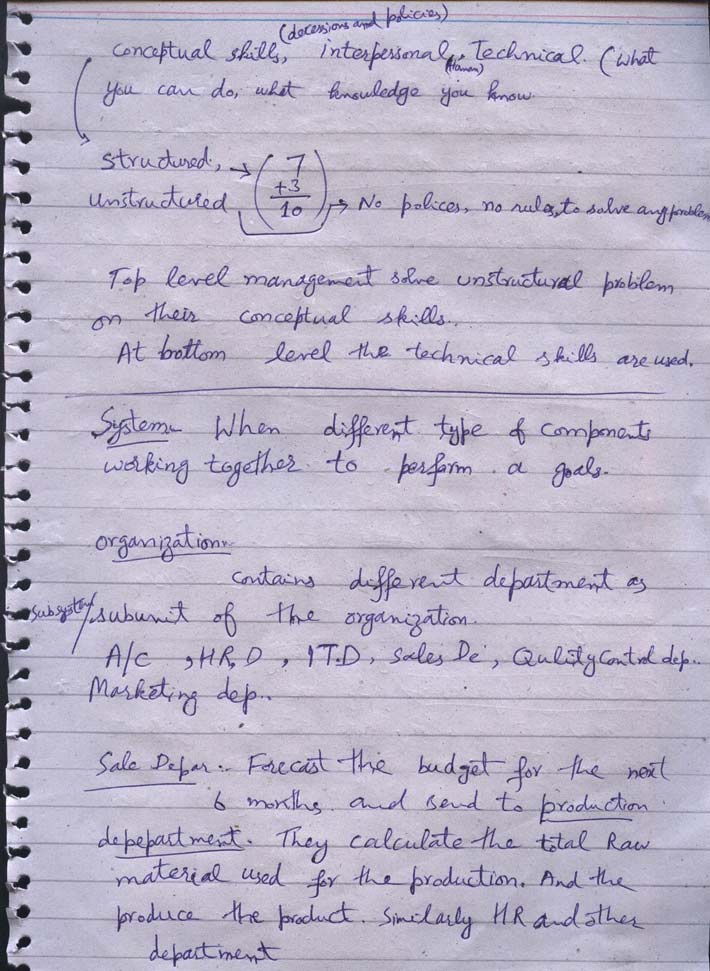 (decessions and policies)
conceptual skills, interpersonal, Technical. (what
(Human)
you can do, what knowledge you know
structured, → 7
+3
unstructured 10 → No polices, no rules, to solve any problem
Top level management solve unstructural problem
on their conceptual skills.
At bottom level the technical skills are used.
System When different type of components
working together to perform a goals.
organization
contains different department as
subsystem/subunit of the organization.
A/C, HR, D, IT.D, Sales De, QulityControl dep..
Marketing dep..
Sale Depar.. Forecast the budget for the next
6 months and send to production
depepartment. They calculate the total Raw
material used for the production. And the
produce the product. Similarly HR and other
department